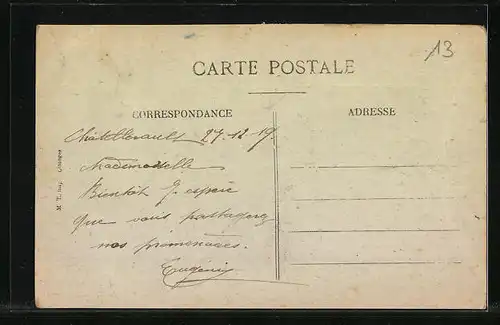 13
CARTE POSTALE
CORRESPONDANCE
ADRESSE
Chatellerault 27-12-19.
Mademoiselle
Bientôt J'espère
que vous partagerez
nos promenades.
Eugénie